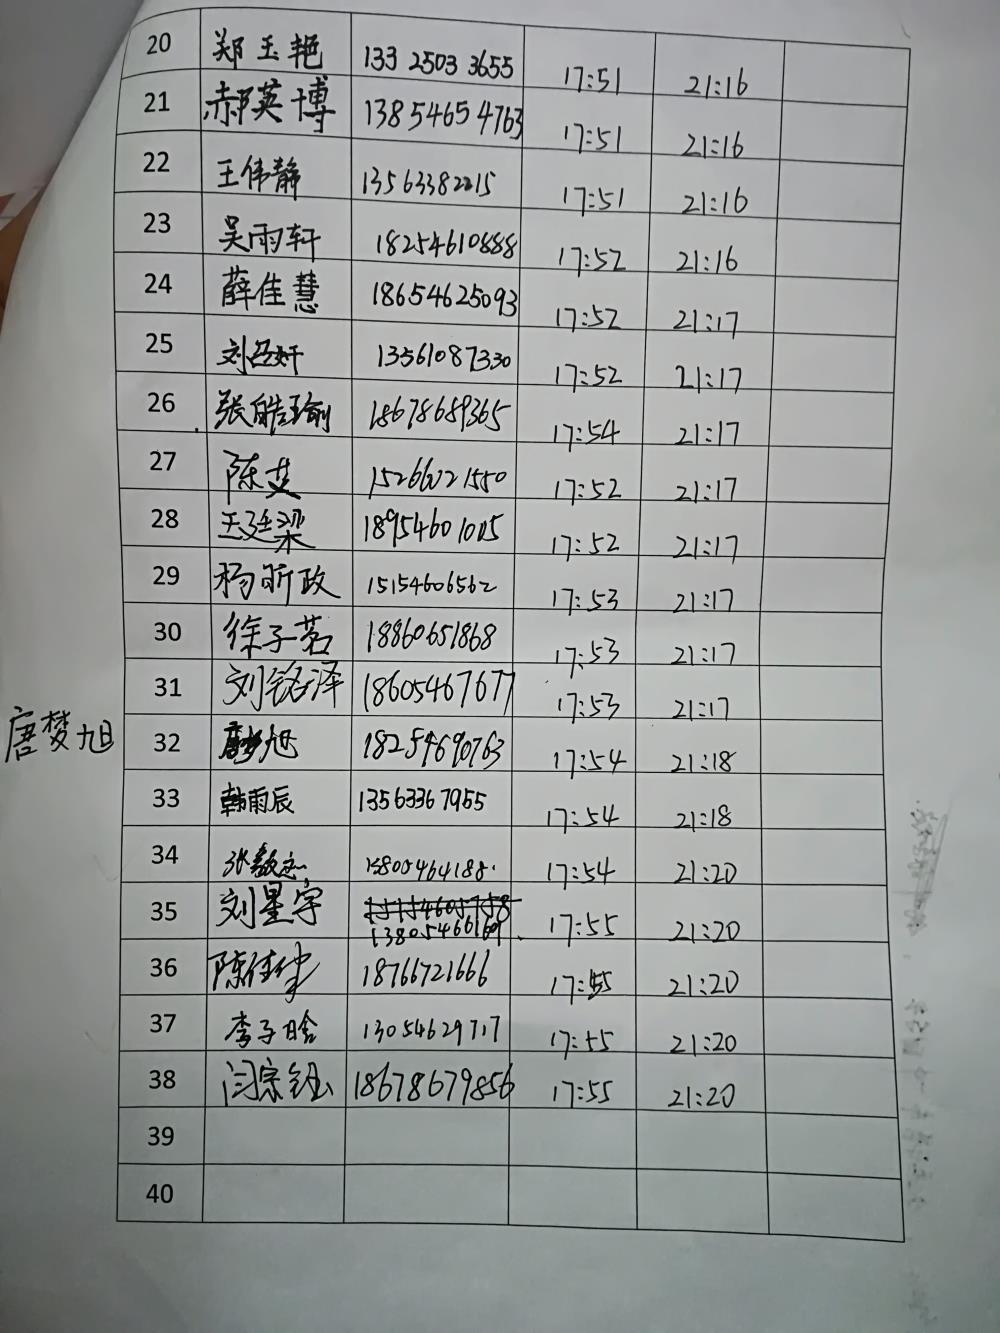 20 郑玉艳 133 2503 3655 17:51 21:16
21 郝英博 13854654763 17:51 21:16
22 王伟静 13563382215 17:51 21:16
23 吴雨轩 18254610888 17:52 21:16
24 薛佳慧 18654625093 17:52 21:17
25 刘 13561087330 17:52 21:17
26 张皓瑜 18678689365 17:54 21:17
27 陈艾 17:52 21:17
28 王廷梁 17:52 21:17
29 杨昕政 15154606562 17:53 21:17
30 徐子茗 18860651868 17:53 21:17
31 刘铭泽 18605467677 17:53 21:17
唐梦旭
32 唐梦旭 18254690763 17:54 21:18
33 韩雨辰 13563367955 17:54 21:18
34 张 17:54 21:20
35 刘星宇 15154605758 17:55 21:20
13805466169
36 陈佳 18766721666 17:55 21:20
37 李子晗 13054629717 17:55 21:20
38 闫宗钰 18678679856 17:55 21:20
39
40